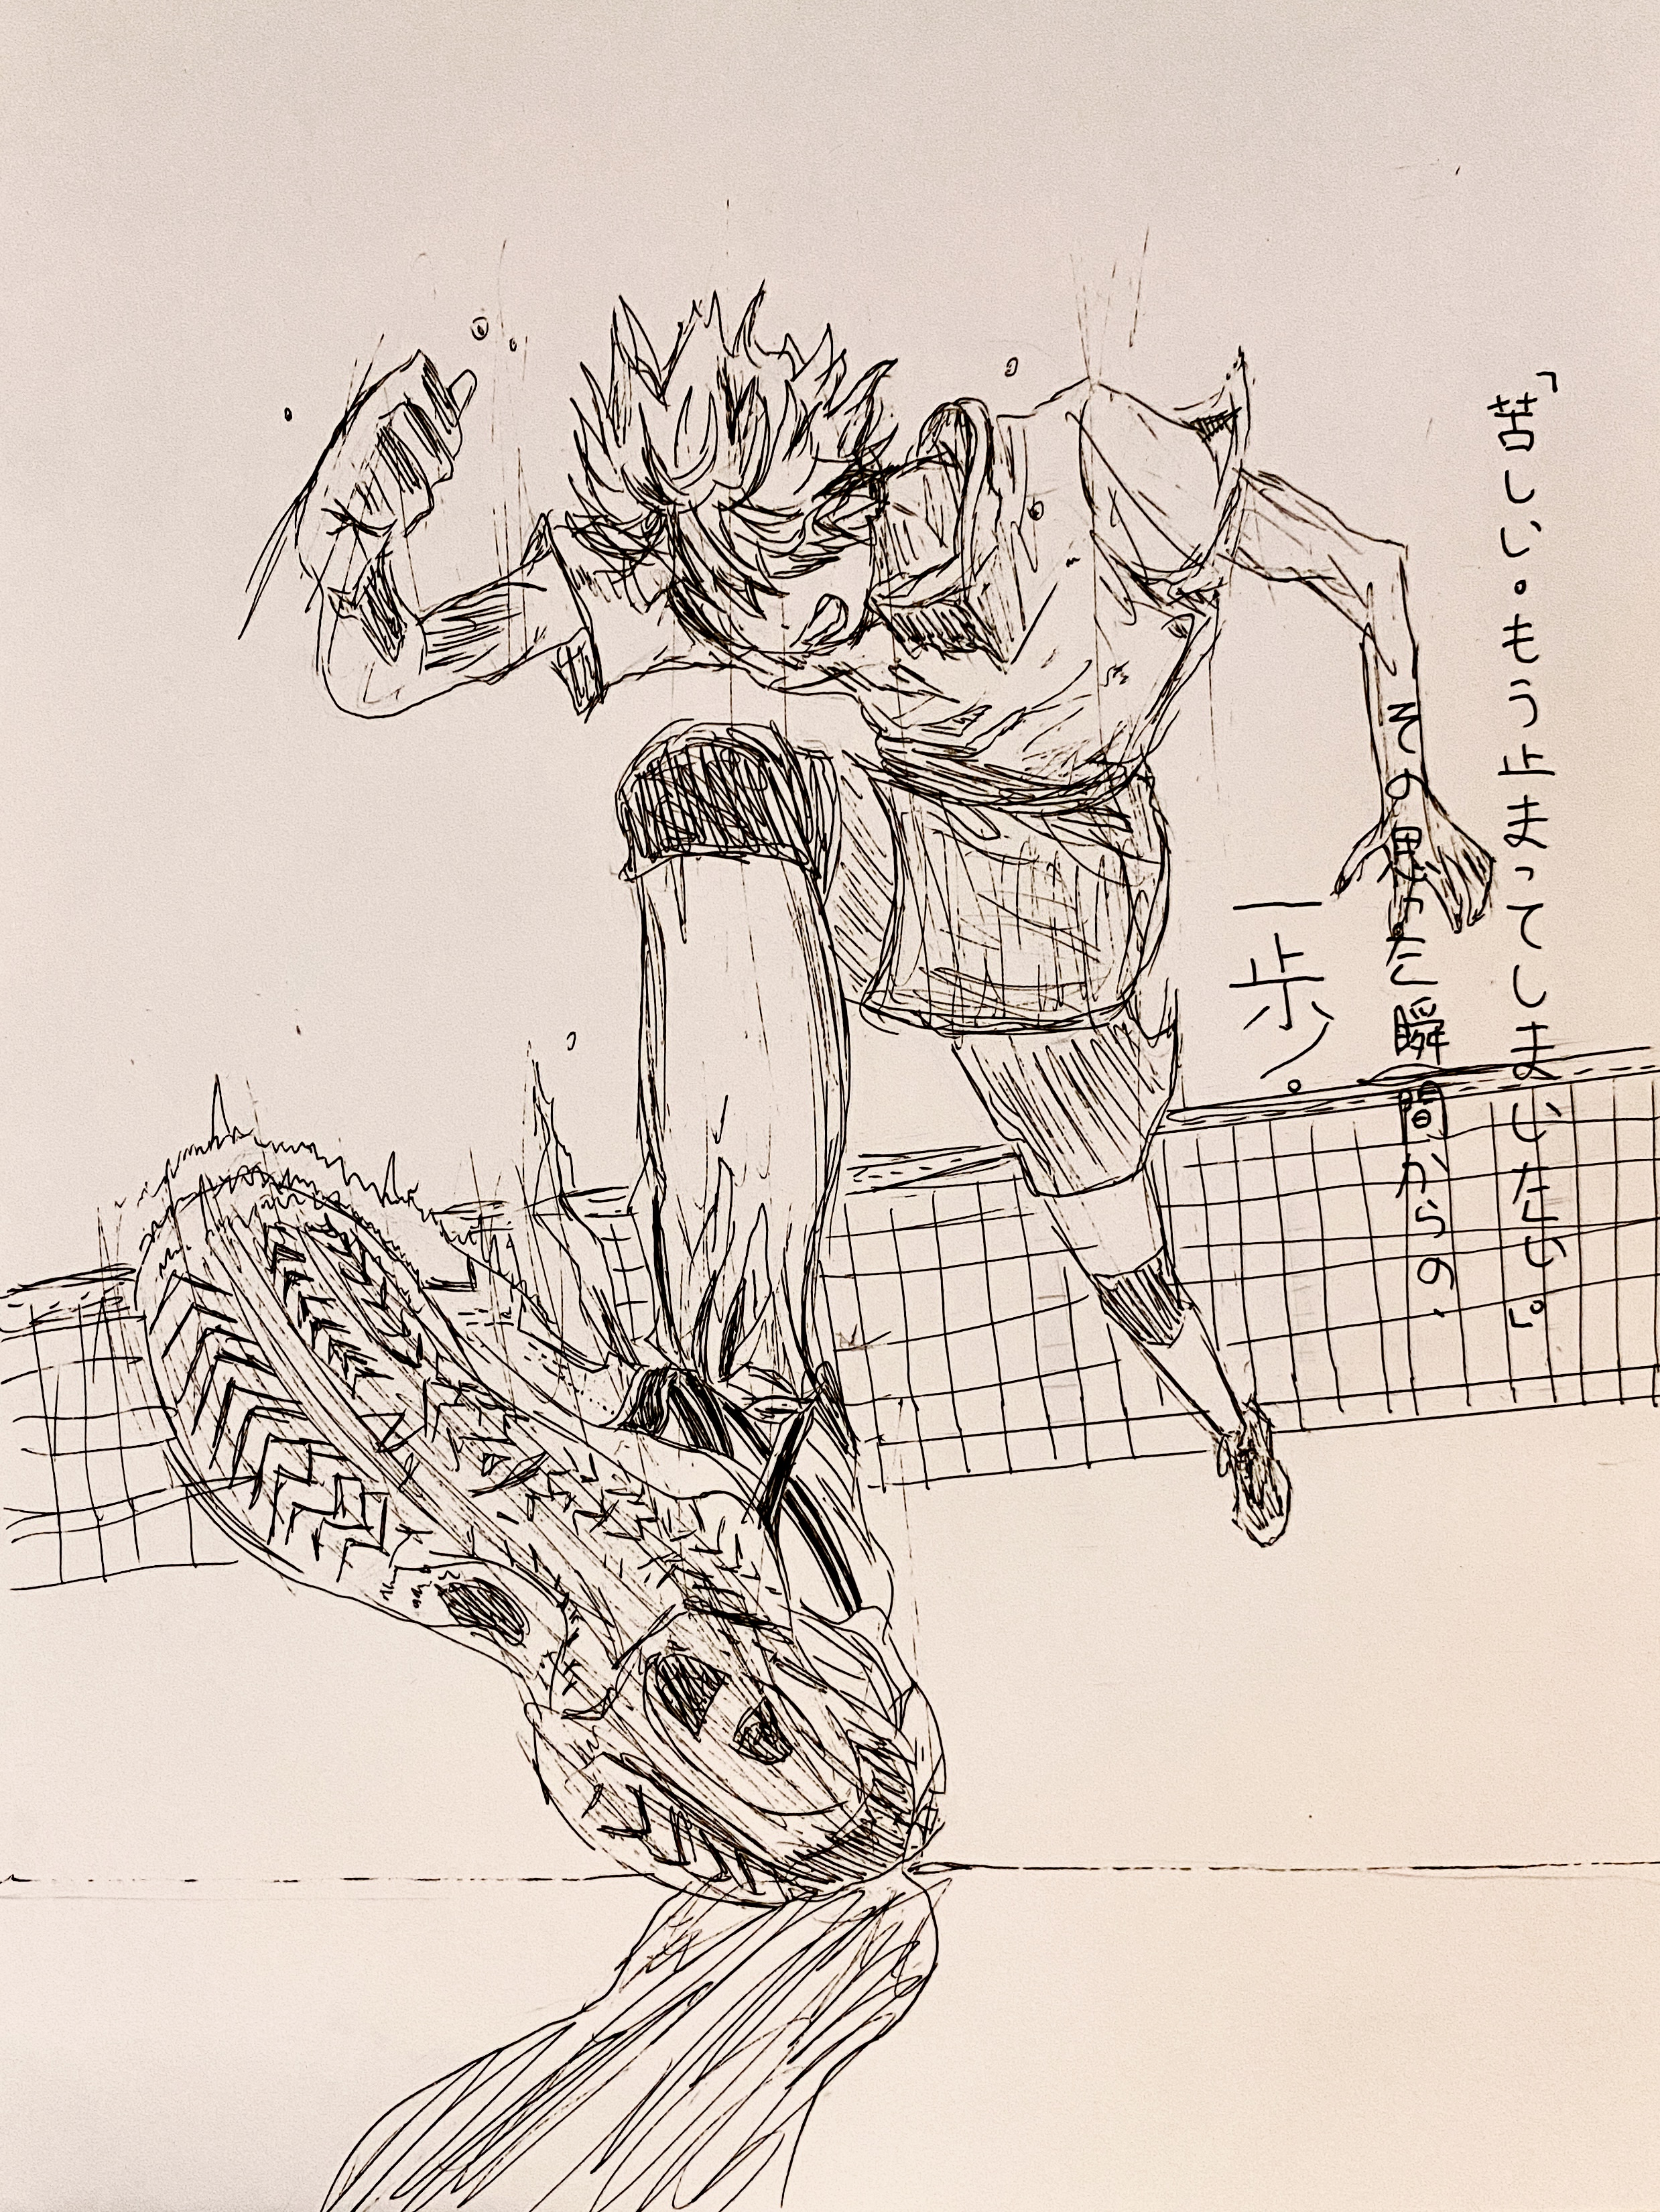 「苦しい。もう止まってしまいしたい。」
その思った瞬間からの、
一歩。